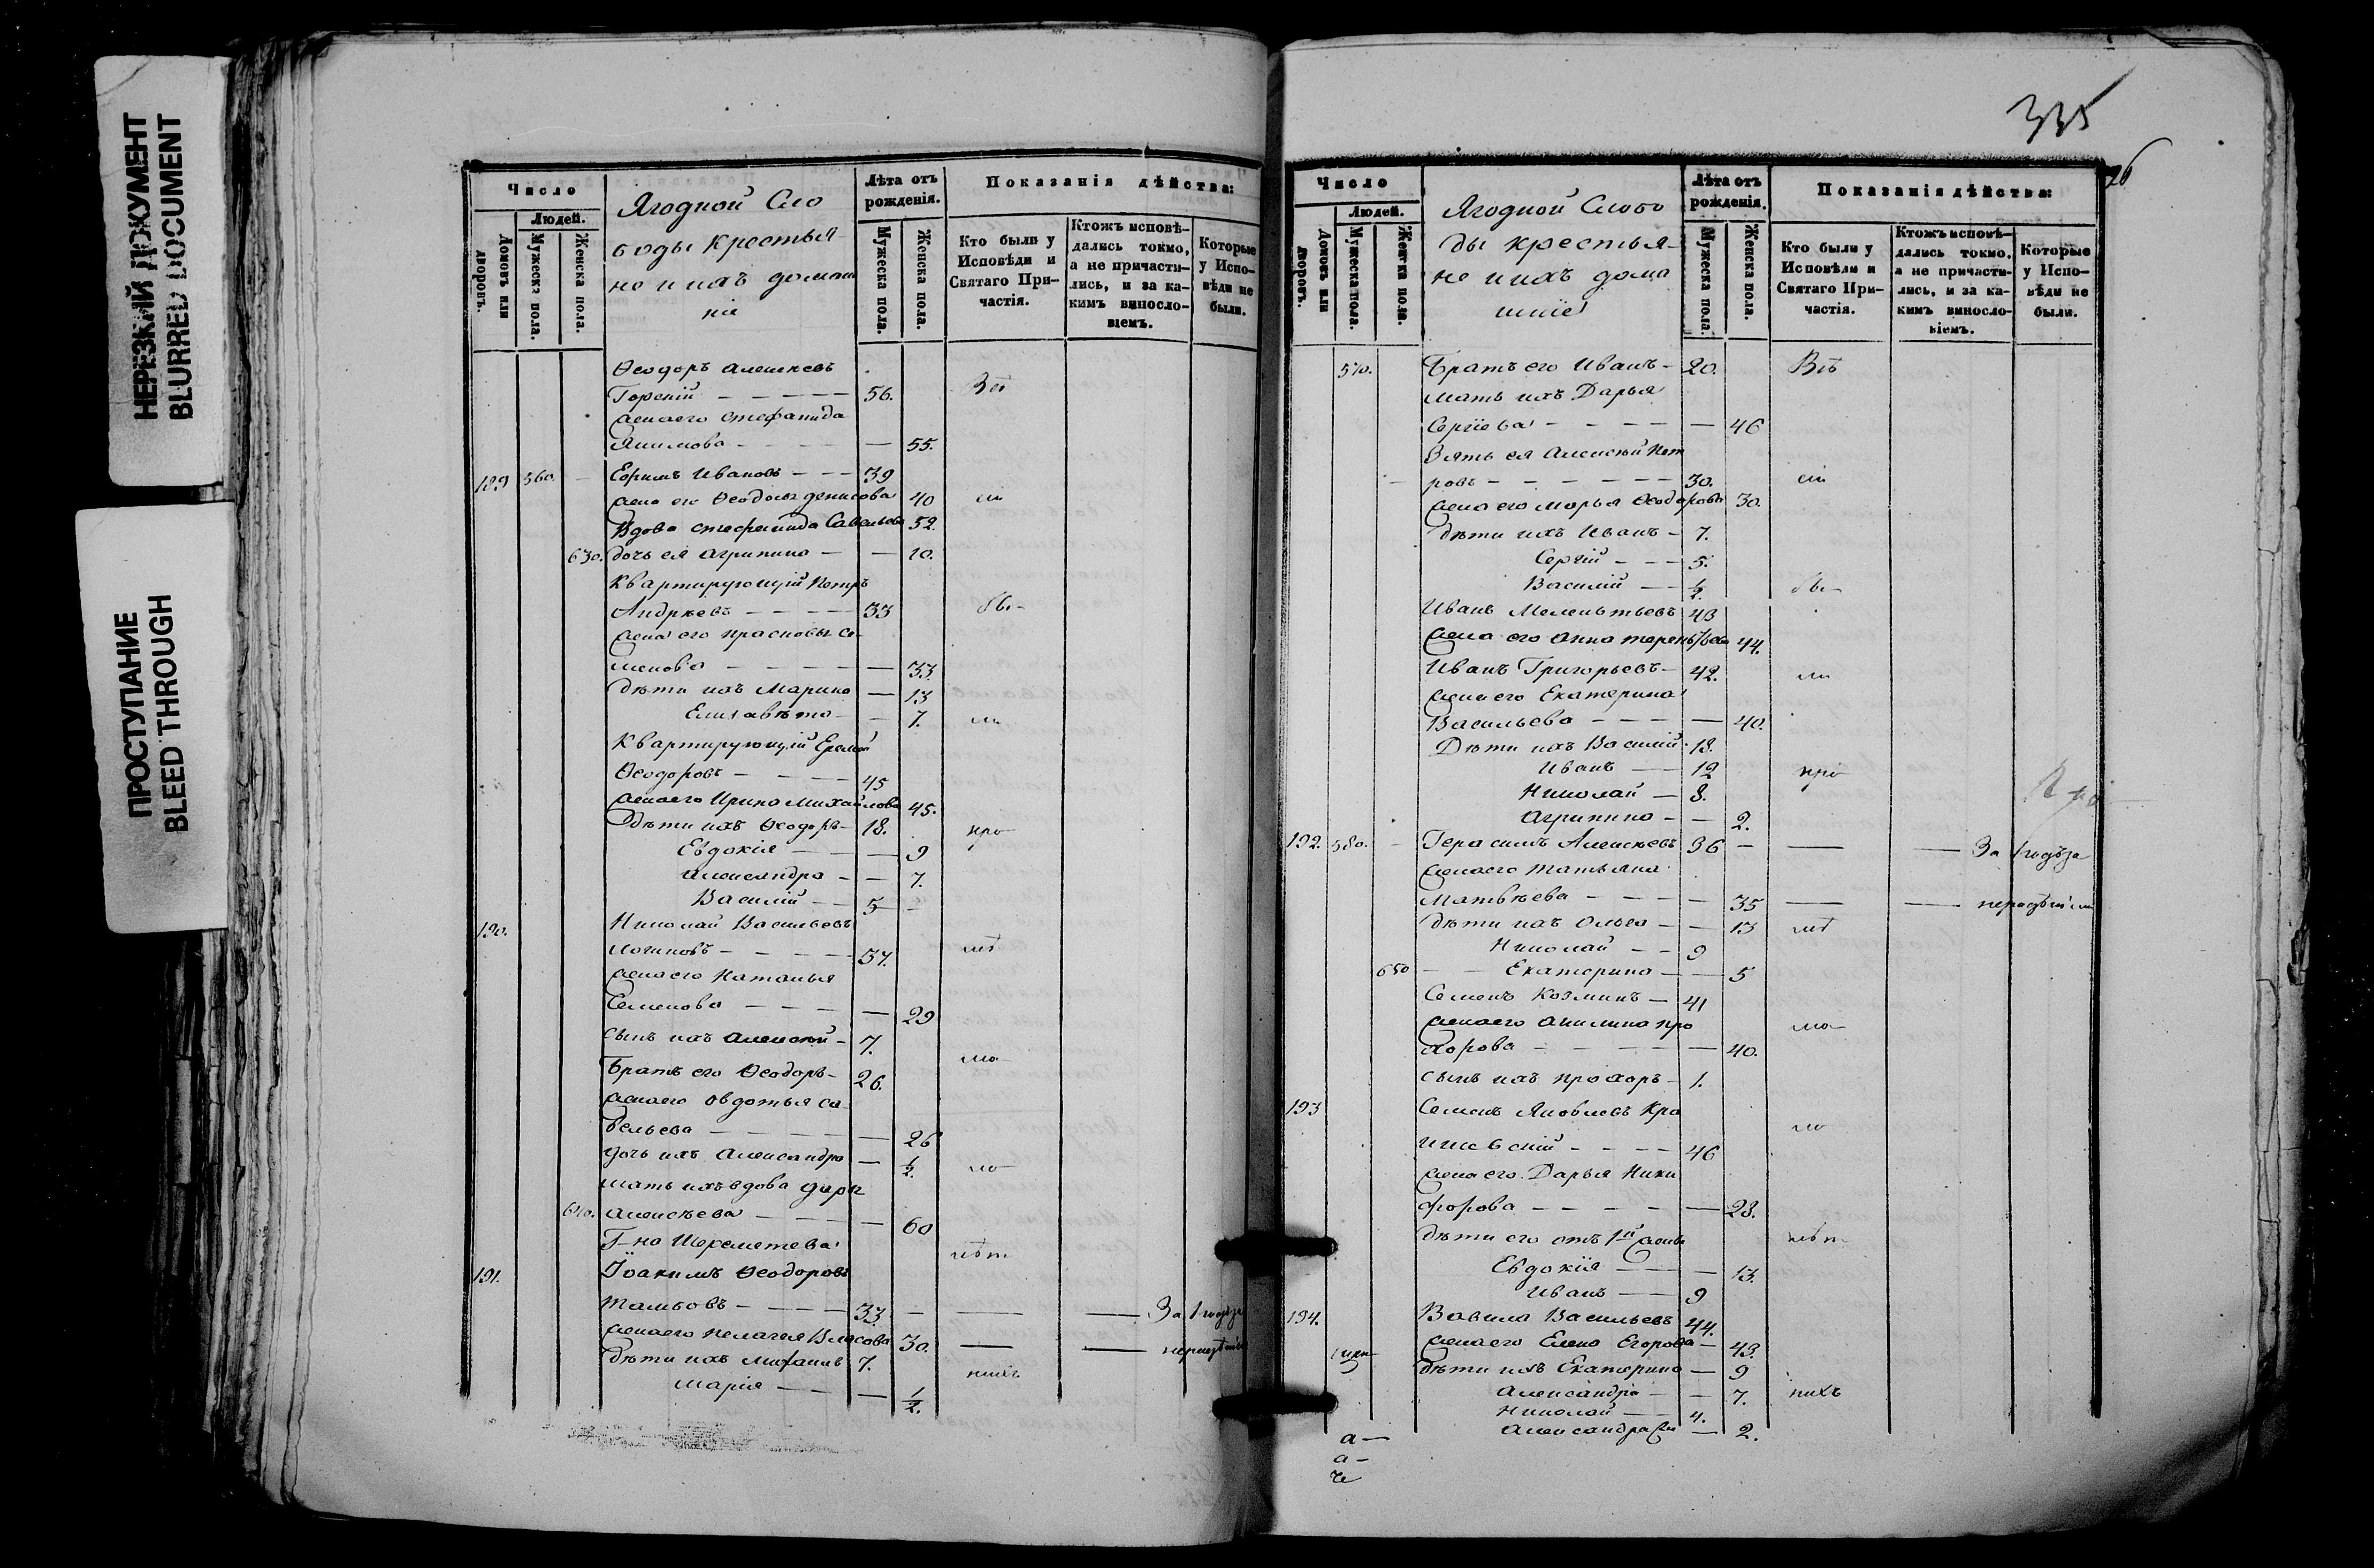 НЕРЕЗКИЙ ДОКУМЕНТ
BLURRED DOCUMENT
ПРОСТУПАНИЕ
BLEED THROUGH
Число
Людей.
Домовъ или дворовъ.
Мужеска пола.
Женска пола.
Ягодной Сло
боды крестья-
не и ихъ домаш
ніе
Лѣта отъ рожденія.
Мужеска пола.
Женска пола.
Показанія дѣйства:
Кто были у Исповѣди и Святаго При-частія.
Ктожъ исповѣ-дались токмо, а не причасти-лись, и за ка-кимъ винослo-віемъ.
Которые у Испо-вѣди не были.
Ѳеодоръ Алексѣевъ
Горскій — 56.
Жена его Стефанида
Якимова — 55.
189 560. Ефимъ Ивановъ — 39
Жена его Ѳеодосья Денисова 40
Вдова Стефанида Савельева 52.
630. дочь ея Агрипина — 10.
Квартирующій Петръ
Андрѣевъ — 33 бы-
Жена его Прасковья Се-
менова — 33.
дѣти ихъ Марина — 13
Елизавѣта — 7. ли
Квартирующій
Ѳеодоровъ — 45
Жена его Ирина Михайлова 45.
Дѣти ихъ Ѳеодоръ — 18. про
Евдокія — 9
Александра — 7.
Василій — 5
190. Николай Васильевъ
Логиновъ — 37.
Жена его Наталья
Семенова — 29
сынъ ихъ Алексѣй — 7.
Братъ его Ѳеодоръ — 26.
Жена его Овдотья Са-
вельева — 26
дочь ихъ Александра — 1/2.
мать ихъ вдова Дарья
640. Алексѣева — 60
Г-на Шереметева
191. Іоакимъ Ѳеодоровъ
— 33. — За 1 годъ за
Жена его Пелагея Власова 30.
дѣти ихъ 7. нихъ
Марія — 1/2.
335
Число
Людей.
Домовъ или дворовъ.
Мужеска пола.
Женска пола.
Ягодной Слобо
ды крестья-
не и ихъ дома
шніе
Лѣта отъ рожденія.
Мужеска пола.
Женска пола.
Показанія дѣйства:
Кто были у Исповѣди и Святаго При-частія.
Ктожъ исповѣ-дались токмо, а не причасти-лись, и за ка-кимъ винослo-віемъ.
Которые у Испо-вѣди не были.
570. Братъ его Иванъ — 20.
Мать ихъ Дарья
Сергіева — 46
Зять ея Алексѣй Пет
ровъ — 30. сіи
Жена его Марья Ѳеодорова 30.
дѣти ихъ Иванъ — 7.
Сергій — 5.
Василій — 1/2. бы-
Иванъ Мелентьевъ 43
Жена его Анна Терентьева 44.
Иванъ Григорьевъ — 42. ли
Жена его Екатерина
Васильева — 40.
Дѣти ихъ Василій 18.
Иванъ — 12 при
Николай — 8.
Агрипина — 2.
192. 580. Герасимъ Алексѣевъ 36 — За 1 годъ за
Жена его Татьяна
Матвѣева — 35 — нерадѣніемъ
дѣти ихъ Ольга — 13
Николай — 9
650 Екатерина — 5
Семенъ Козминъ — 41
Жена его Акилина Про
хорова — 40.
сынъ ихъ Прохоръ — 1.
193 Семенъ Яковлевъ Кра
— 46
Жена его Дарья Ники
форова — 28.
дѣти его отъ 1й жены
Евдокія — 13.
Иванъ — 9
194. Вавила Васильевъ 44.
Жена его Елена Егорова — 43.
дѣти ихъ Екатерина — 9
Александра — 7. нихъ
Николай — 4.
Александра — 2.